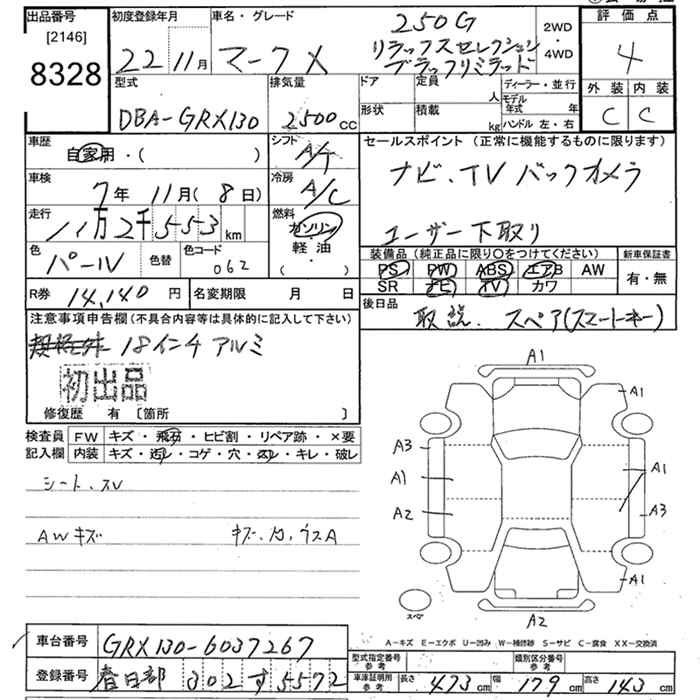 出品番号
[2146]
8328
初度登録年月
22 11月
車名・グレード
マークX
250G
リラックスセレクション
ブラックリミテッド
2WD
・
4WD
評価点
4
外装 内装
C C
型式
DBA-GRX130
排気量
2500cc
ドア 定員 人
形状 積載 kg
ディーラー・並行
モデル年式 年
ハンドル 左・右
車歴
自家用・( )
シフト
A/T
車検
7年 11月(8日)
冷房
A/C
走行
11万2千553km
燃料
ガソリン
軽・油
( ・ )
色
パール
色替
色コード
062
R券 14,140円
名変期限 月 日
セールスポイント(正常に機能するものに限ります)
ナビ.TV バックカメラ
ユーザー下取り
装備品(純正品に限り○をつけてください)
PS PW ABS エアB AW
SR ナビ TV カワ
新車保証書
有・無
後日品
取説. スペア(スマートキー)
注意事項申告欄(不具合内容等は具体的に記入して下さい)
規格外 18インチ アルミ
初出品
修復歴 有 [箇所 ]
検査員 FW キズ・飛石・ヒビ割・リペア跡・×要
記入欄 内装 キズ・汚レ・コゲ・穴・スレ・キレ・破レ
シート.スレ
AWキズ
A1
A1
A3
A1
A2
A1
A3
A1
A2
スペア
A-キズ E-エクボ U-凹み W-補修跡 S-サビ C-腐食 XX-交換済
車台番号 GRX130-6037267
登録番号 春日部 302 す 5572
型式指定番号 参考
類別区分番号 参考
車庫証明用 参考 長さ 473cm 幅 179cm 高さ 143cm